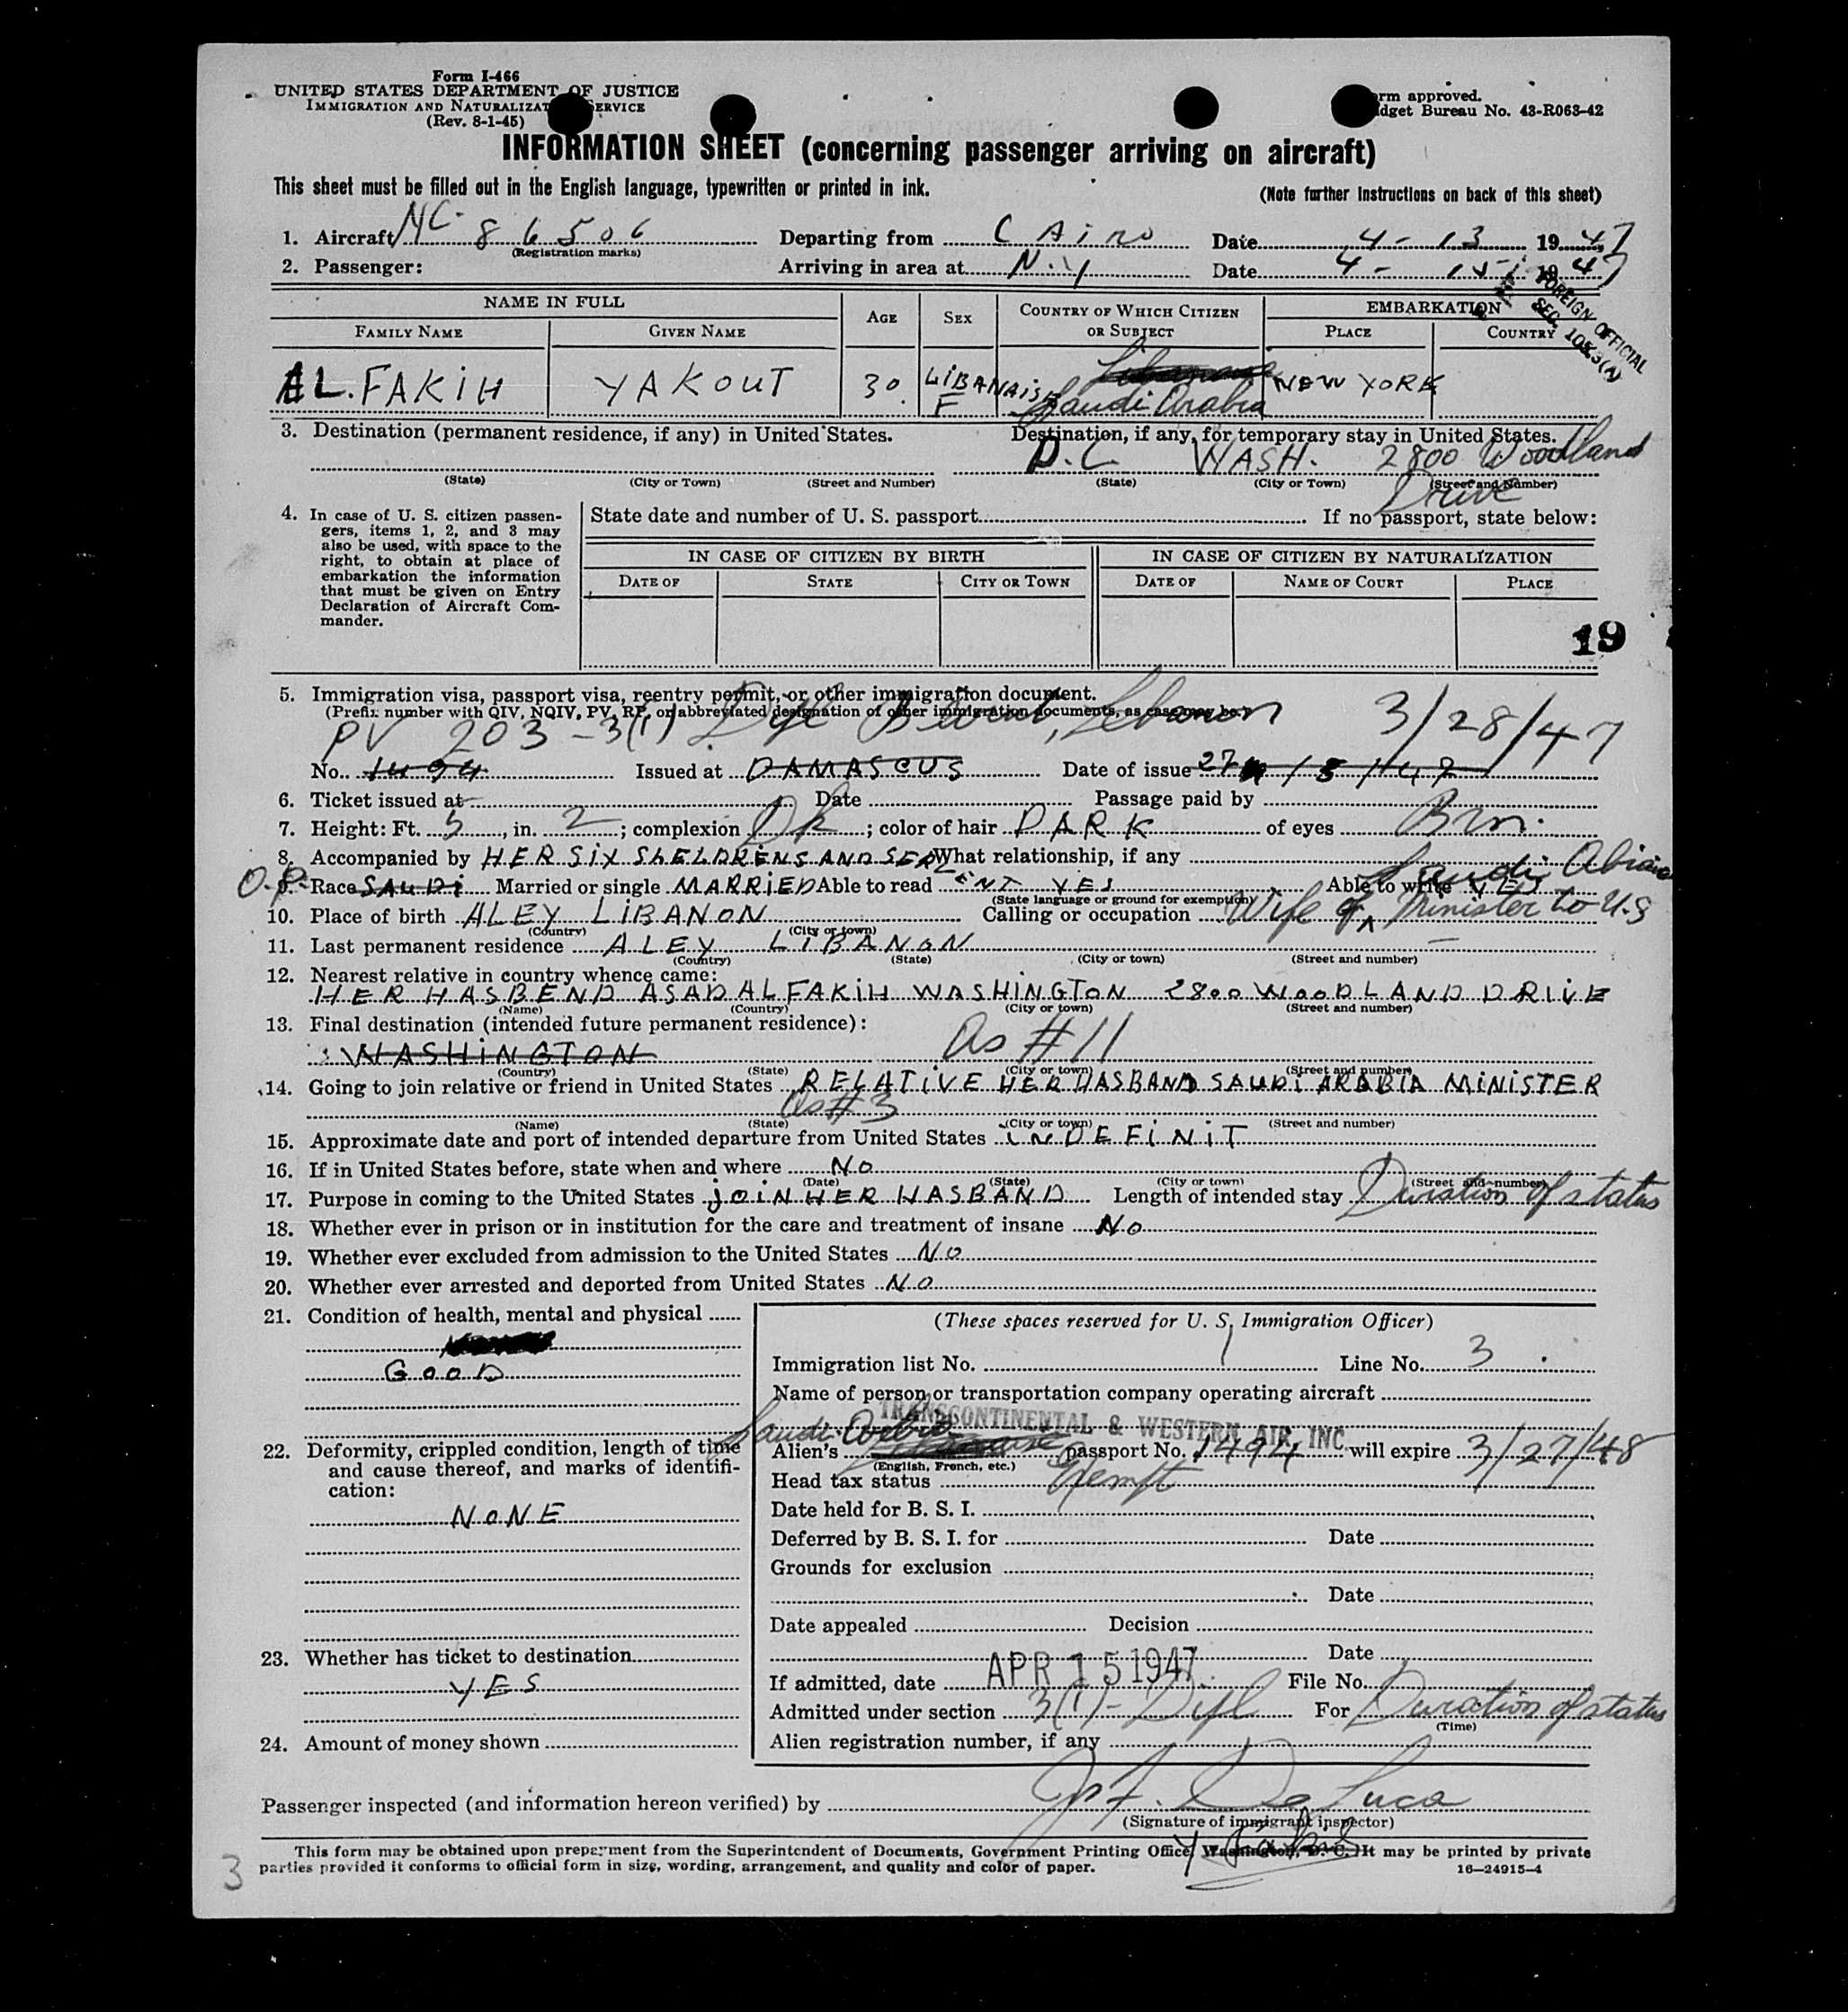 Form I-466
UNITED STATES DEPARTMENT OF JUSTICE
IMMIGRATION AND NATURALIZAT ERVICE
(Rev. 8-1-45)
rm approved.
dget Bureau No. 43-R063-42
INFORMATION SHEET (concerning passenger arriving on aircraft)
This sheet must be filled out in the English language, typewritten or printed in ink. (Note further instructions on back of this sheet)
1. Aircraft NC- 86506 Departing from CAiro Date 4-13 1947
(Registration marks)
2. Passenger: Arriving in area at N.Y Date 4- 1947
FOREIGN OFFICIAL
SEC.
NAME IN FULL AGE SEX COUNTRY OF WHICH CITIZEN OR SUBJECT EMBARKATION
FAMILY NAME GIVEN NAME PLACE COUNTRY
AL.FAKiH YAKOUT 30. LiBANAiSE F Saudi Arabia NEW YORK
3. Destination (permanent residence, if any) in United States. Destination, if any, for temporary stay in United States.
D.C WASH. 2800 Woodland Drive
(State) (City or Town) (Street and Number) (State) (City or Town) (Street and Number)
4. In case of U. S. citizen passen-
gers, items 1, 2, and 3 may
also be used, with space to the
right, to obtain at place of
embarkation the information
that must be given on Entry
Declaration of Aircraft Com-
mander.
State date and number of U. S. passport If no passport, state below:
IN CASE OF CITIZEN BY BIRTH IN CASE OF CITIZEN BY NATURALIZATION
DATE OF STATE CITY OR TOWN DATE OF NAME OF COURT PLACE
19
5. Immigration visa, passport visa, reentry permit, or other immigration document.
(Prefix number with QIV, NQIV, PV, RP, or abbreviated designation of other immigration documents, as case may be.)
PV 203-3(1) Dipl Beirut, Lebanon 3/28/47
No. 1494 Issued at DAMASCUS Date of issue 27
6. Ticket issued at Date Passage paid by
7. Height: Ft. 5, in. 2; complexion Dk; color of hair DARK of eyes Brn.
8. Accompanied by HER SiX ShELDRENS AND What relationship, if any
9. Race SAUDi Married or single MARRiED Able to read YES Able to write YES
Saudi
(State language or ground for exemption)
10. Place of birth ALEY LiBANON Calling or occupation Wife of Minister to U.S
(Country) (City or town)
11. Last permanent residence ALEY LiBANON
(Country) (State) (City or town) (Street and number)
12. Nearest relative in country whence came:
HER HASBEND ASAD ALFAKiH WASHiNGTON 2800 WOODLAND DRiVE
(Name) (Country) (City or town) (Street and number)
13. Final destination (intended future permanent residence):
WASHiNGTON As #11
(Country) (State) (City or town) (Street and number)
14. Going to join relative or friend in United States RELATiVE HER HASBAND SAUDi ARABIA MiNiSTER
As #3
(Name) (State) (City or town) (Street and number)
15. Approximate date and port of intended departure from United States iNDEFiNiT
16. If in United States before, state when and where No
(Date) (State) (City or town) (Street and number)
17. Purpose in coming to the United States joiN HER HASBAND Length of intended stay Duration of status
18. Whether ever in prison or in institution for the care and treatment of insane No
19. Whether ever excluded from admission to the United States No
20. Whether ever arrested and deported from United States No
21. Condition of health, mental and physical
GooD
22. Deformity, crippled condition, length of time
and cause thereof, and marks of identifi-
cation:
NoNE
23. Whether has ticket to destination
YES
24. Amount of money shown
(These spaces reserved for U. S. Immigration Officer)
Immigration list No. 1 Line No. 3
Name of person or transportation company operating aircraft
TRANSCONTINENTAL & WESTERN AIR, INC.
Alien's Saudi Arabia passport No. 1494 will expire 3/27/48
(English, French, etc.)
Head tax status Exempt
Date held for B. S. I.
Deferred by B. S. I. for Date
Grounds for exclusion
Date
Date appealed Decision
Date
If admitted, date APR 15 1947 File No.
Admitted under section 3(1)- Dipl For Duration of status
(Time)
Alien registration number, if any
Passenger inspected (and information hereon verified) by De Luca
(Signature of immigrant inspector)
This form may be obtained upon prepayment from the Superintendent of Documents, Government Printing Office, Washington, D. C. It may be printed by private
parties provided it conforms to official form in size, wording, arrangement, and quality and color of paper. 16—24915-4
3